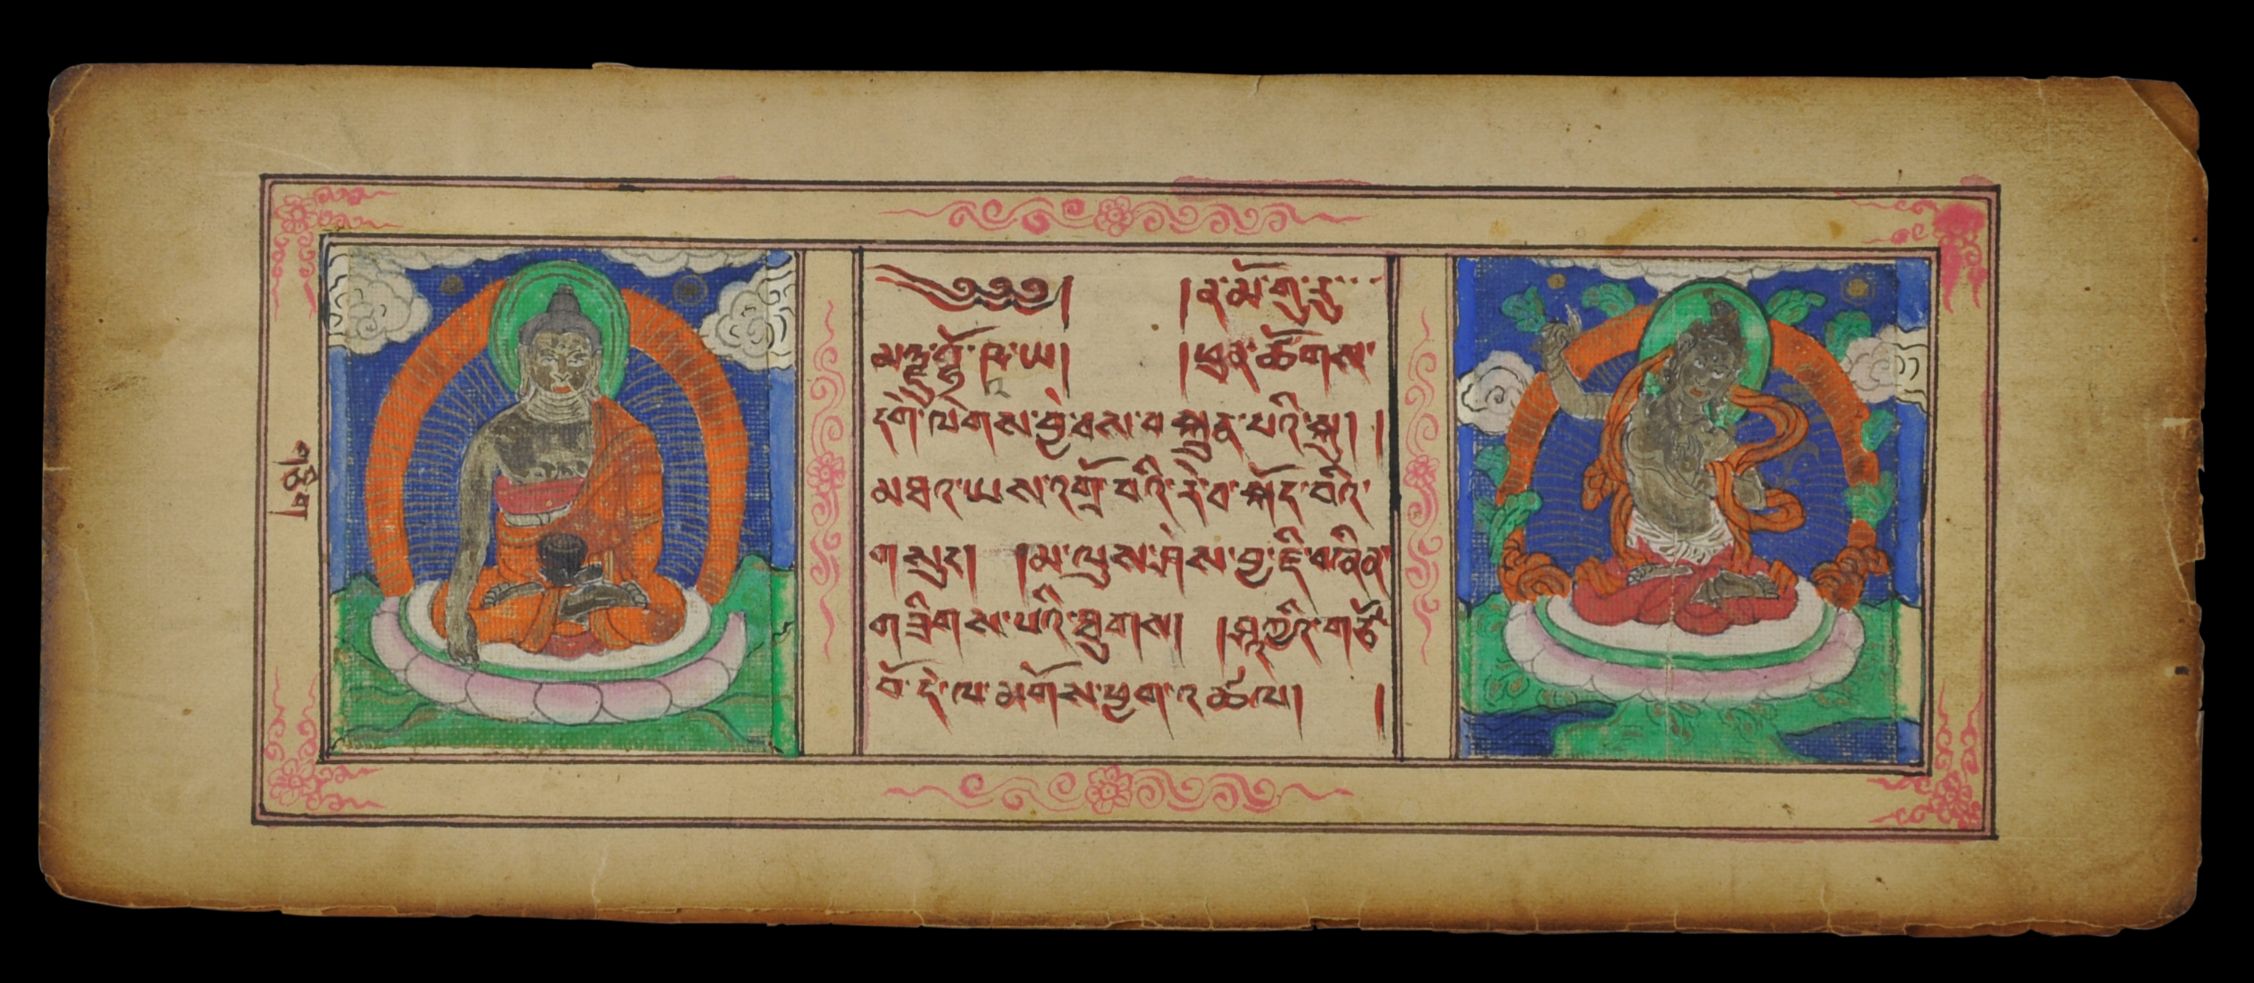 གཅིག
༄༅༅། །ན་མོ་གུ་རུ་
མཉྫུ་གྷོ་ཥཱ་ཡ། །ཕུན་ཚོགས་
དགེ་ལེགས་བྱེ་བས་བསྐྲུན་པའི་སྐུ། །
མཐའ་ཡས་འགྲོ་བའི་རེ་བ་སྐོང་བའི་
གསུང་། །མ་ལུས་ཤེས་བྱ་ཇི་བཞིན་
གཟིགས་པའི་ཐུགས། །ཤཱཀྱའི་གཙོ་
བོ་དེ་ལ་མགོས་ཕྱག་འཚལ། །